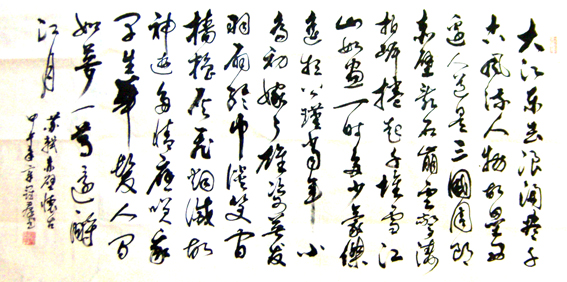 大江东去浪淘尽千
古风流人物故垒西
边人道是三國周郎
赤壁乱石崩云惊涛
拍岸捲起千堆雪江
山如画一时多少豪傑
遥想公瑾当年小
乔初嫁了雄姿英发
羽扇纶巾谈笑间
樯橹灰飞烟滅故
神遊多情应笑我
早生華髮人间
如梦一尊还酹
江月
苏轼赤壁怀古